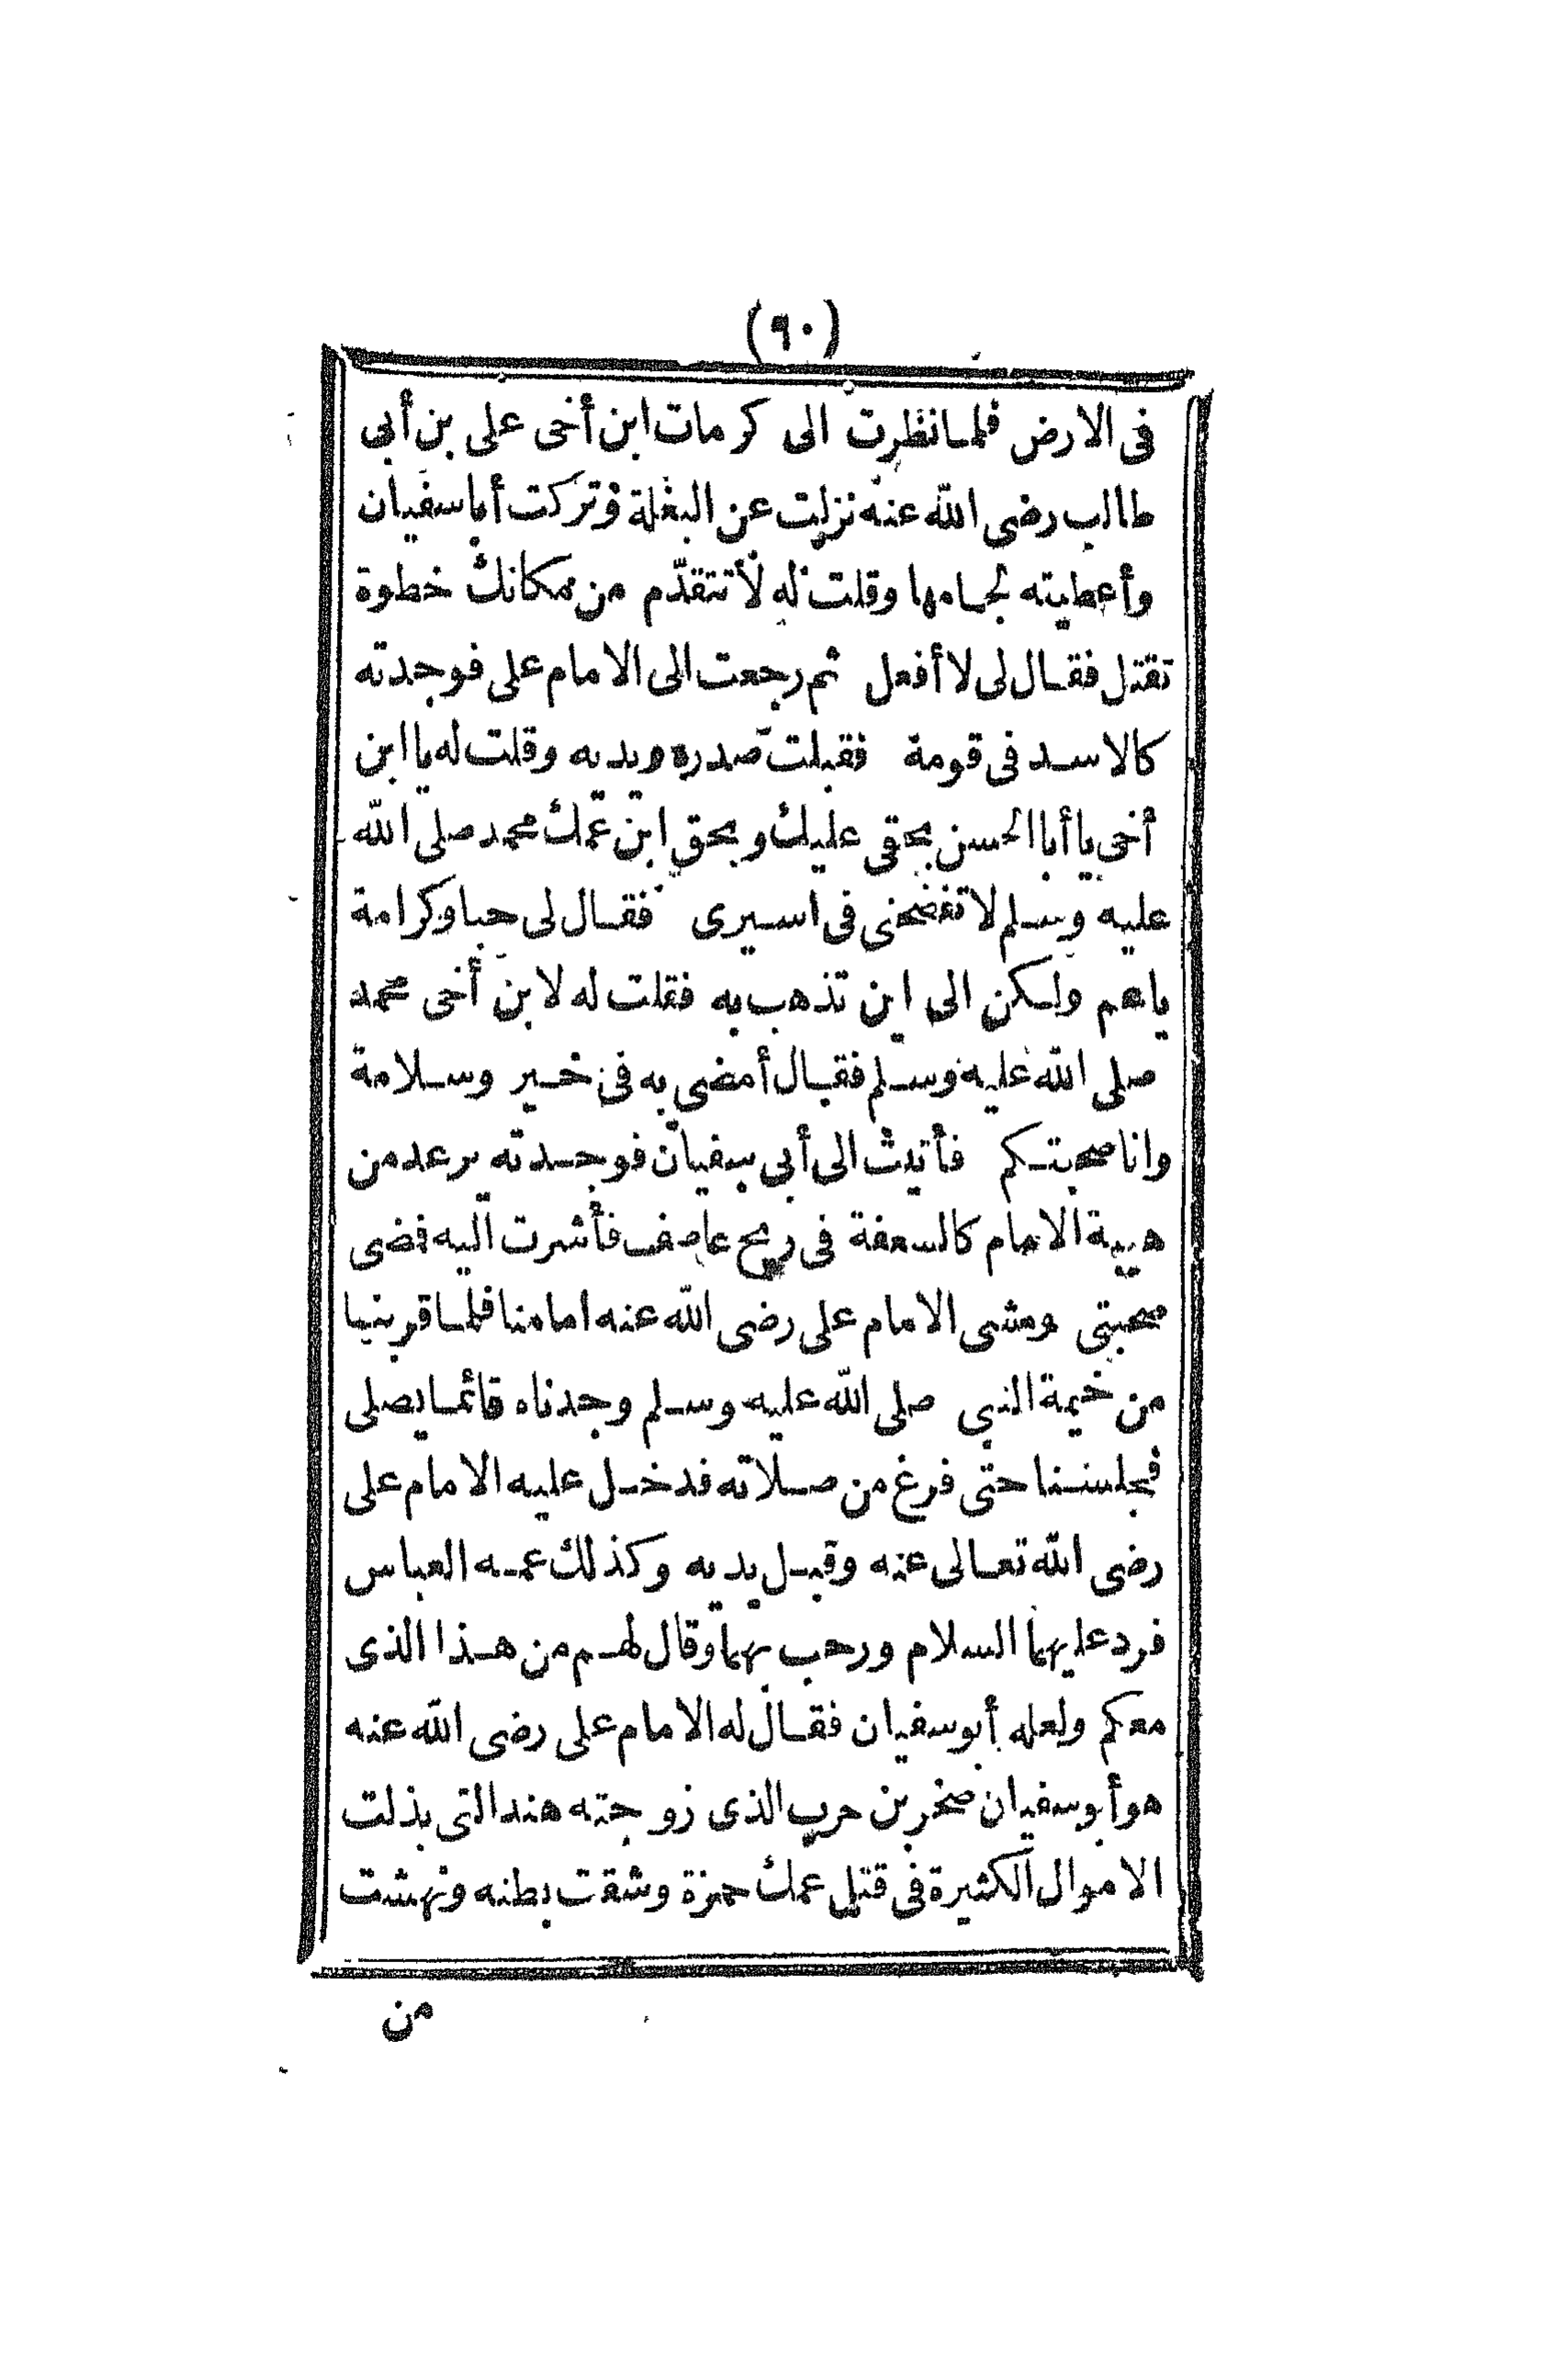 (٩٠)
فى الارض فلما نظرت الى كرمات ابن أخى على بن أبى
طالب رضى الله عنه نزلت عن البغلة وتركت أبا سفيان
وأعطيته لجامها وقلت له لا تتقدّم من مكانك خطوة
تقتل فقال لى لا أفعل ثم رجعت الى الامام على فوجدته
كالاسد فى قومة فقبلت صدره ويديه وقلت له يا ابن
أخى يا أبا الحسن بحقى عليك وبحق ابن عمك محمد صلى الله
عليه وسلم لا تفضحنى فى اسيرى فقال لى حبا وكرامة
ياعم ولكن الى اين تذهب به فقلت له لابن أخى محمد
صلى الله عليه وسلم فقال أمضى به فى خير وسلامة
وانا صحبتكم فأتيت الى أبى سفيان فوجدته يرعد من
هيبة الامام كالسعفة فى ريح عاصف فأشرت اليه فضى
صحبتى ومشى الامام على رضى الله عنه امامنا فلما قربنا
من خيمة النبى صلى الله عليه وسلم وجدناه قائما يصلى
فجلسنا حتى فرغ من صلاته فدخل عليه الامام على
رضى الله تعالى عنه وقبل يديه وكذلك عمه العباس
فرد عليهما السلام ورحب بهما وقال لهم من هذا الذى
معكم ولعله أبو سفيان فقال له الامام على رضى الله عنه
هو أبو سفيان صخر بن حرب الذى زوجته هند التى بذلت
الاموال الكثيرة فى قتل عمك حمزة وشقت بطنه ونهشت
من